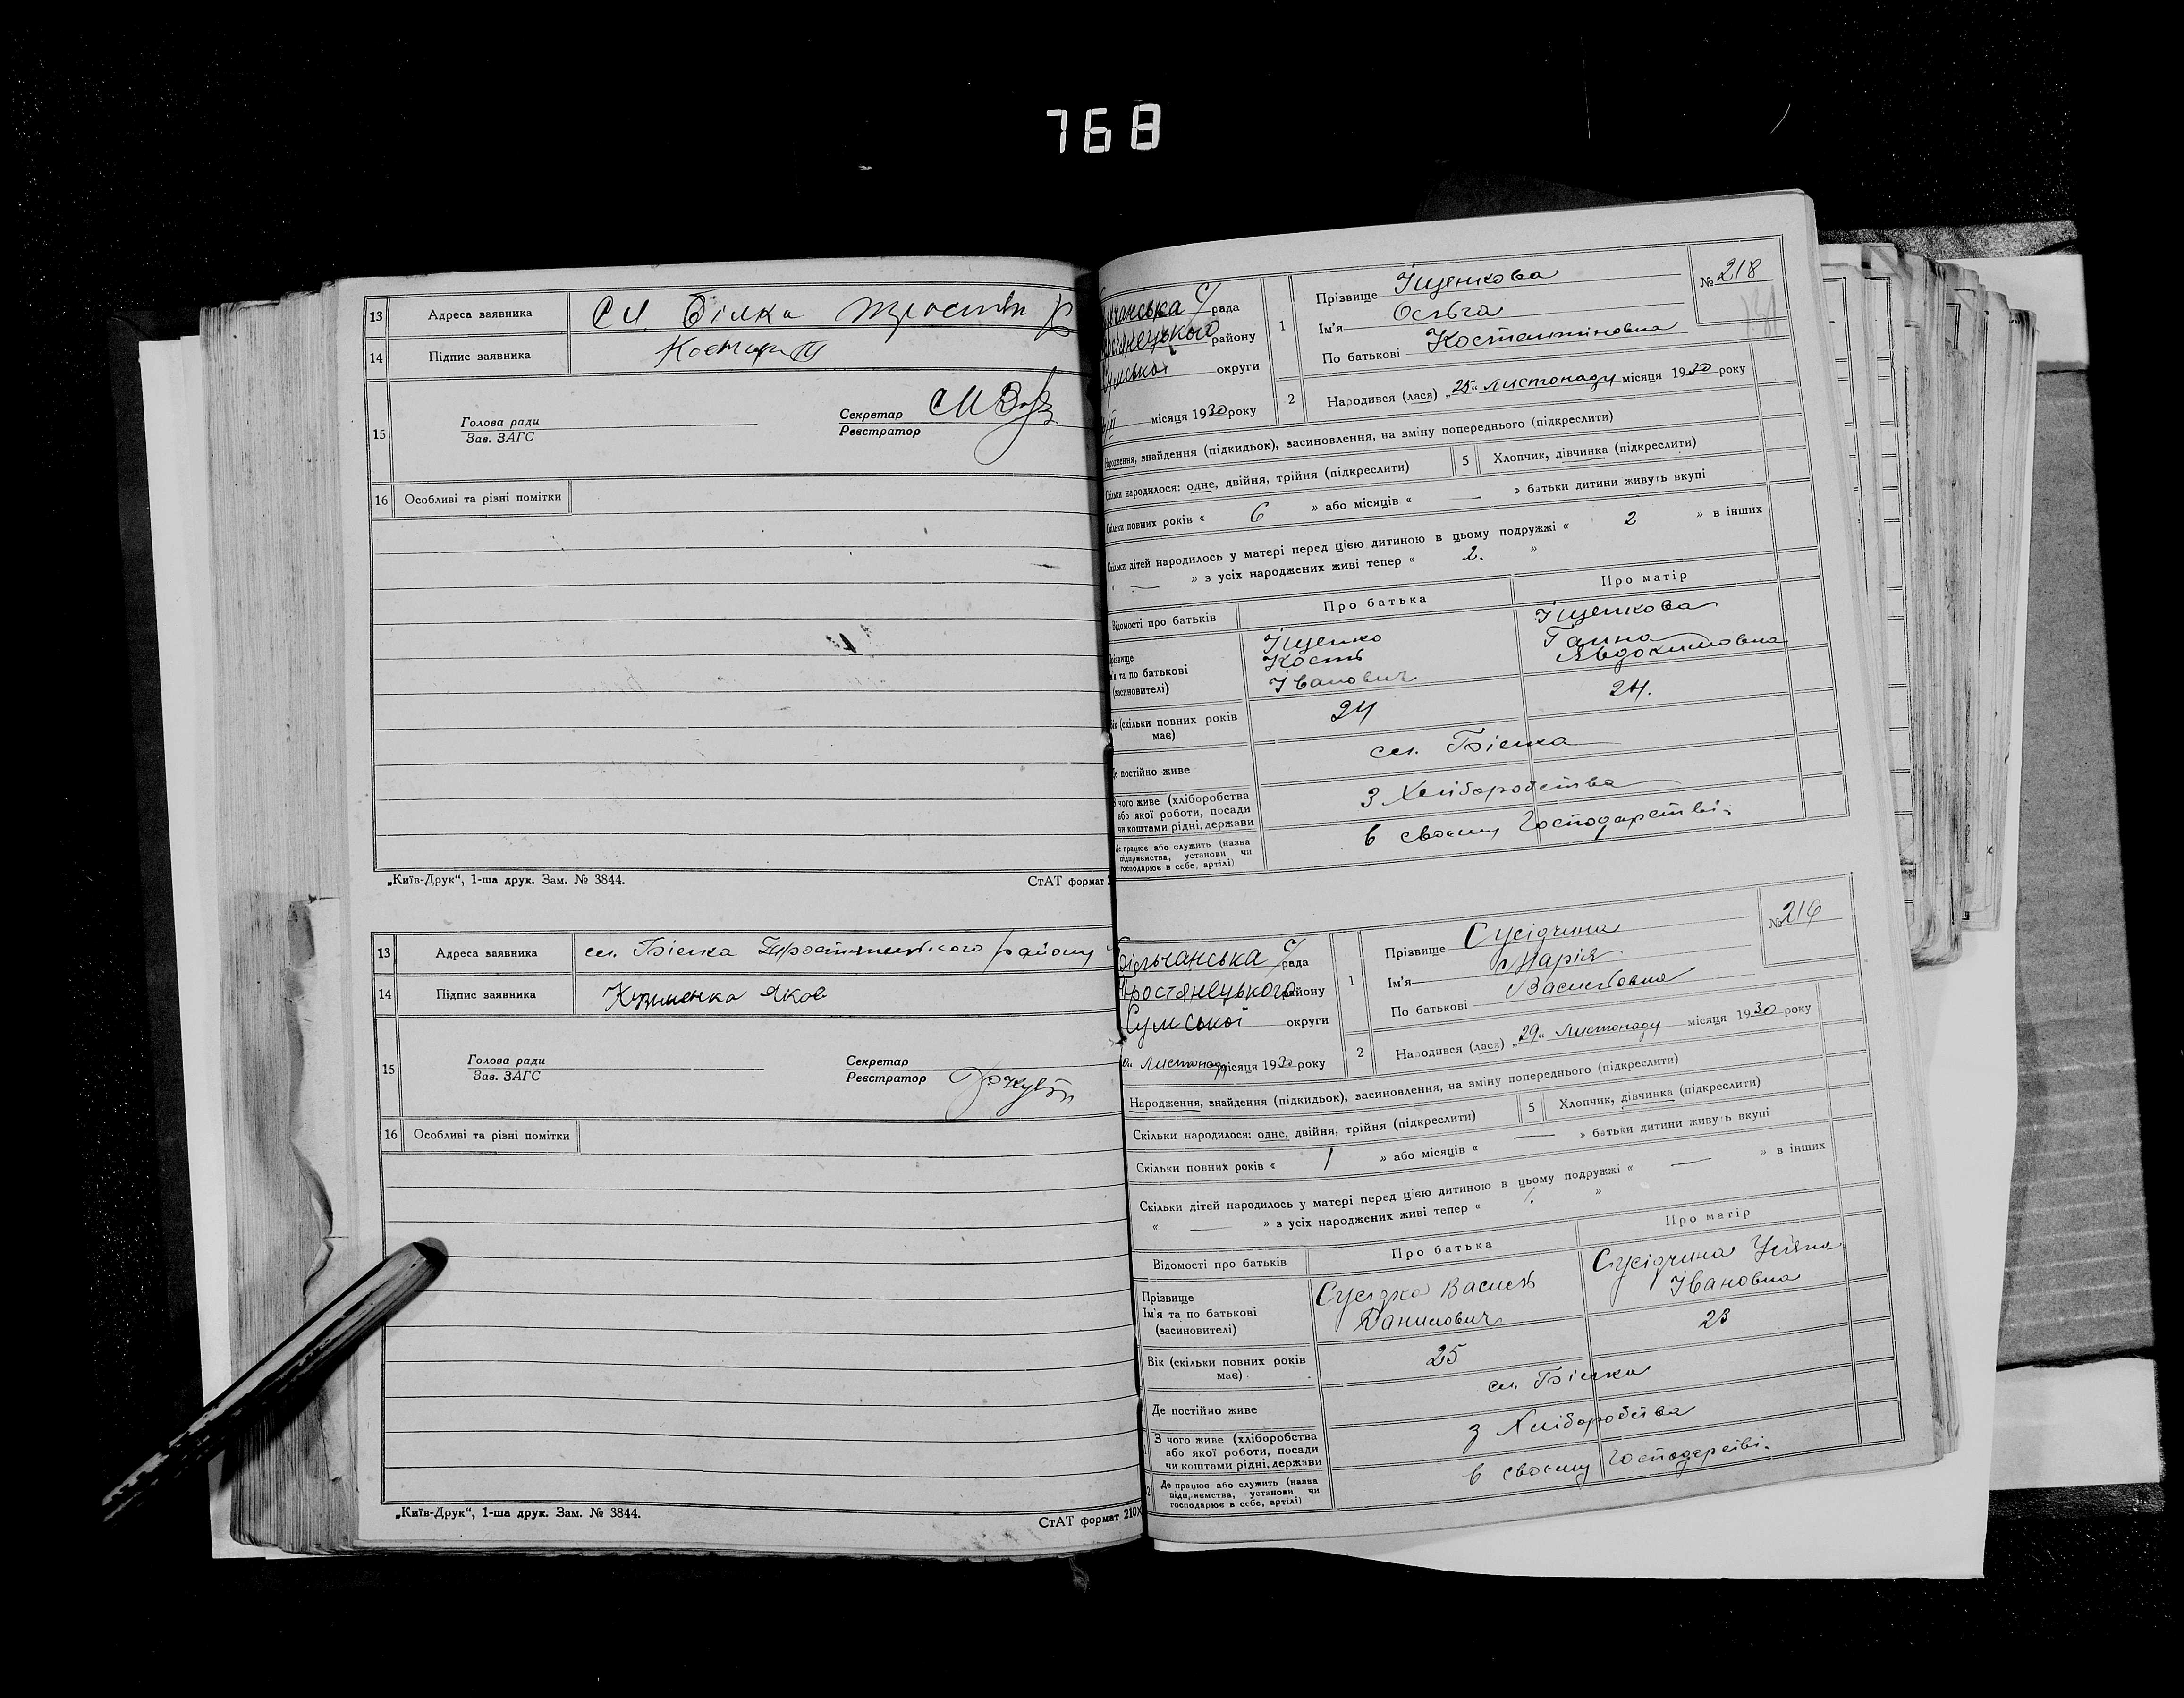 768
13 Адреса заявника Сл. Білка
14 Підпис заявника
15 Голова ради Секретар
Зав. ЗАГС Реєстратор
16 Особливі та різні помітки
„Київ-Друк“, 1-ша друк. Зам. № 3844. СтАТ формат
13 Адреса заявника сл. Білка Тростянецького району
14 Підпис заявника Кузменко Яков
15 Голова ради Секретар
Зав. ЗАГС Реєстратор
16 Особливі та різні помітки
„Київ-Друк“, 1-ша друк. Зам. № 3844. СтАТ формат 210X
с/рада
району
Сумської округи
місяця 1930 року
1 Прізвище Іщенкова № 218
Ім'я Ольга
По батькові Костантіновна
2 Народився (лася) „25“ Листопаду місяця 1930 року
Народження, знайдення (підкидьок), засиновлення, на зміну попереднього (підкреслити)
Скільки народилося: одне, двійня, трійня (підкреслити) 5 Хлопчик, дівчинка (підкреслити)
Скільки повних років « 6 » або місяців « — » батьки дитини живуть вкупі
Скільки дітей народилось у матері перед цією дитиною в цьому подружжі « 2 » в інших
« — » з усіх народжених живі тепер « 2. »
Відомості про батьків Про батька Про матір
Прізвище Іщенко Іщенкова
Ім'я та по батькові Кость Ганна
(засиновителі) Іванович Явдокимовна
Вік (скільки повних років має) 24 24.
Де постійно живе сл. Білка
З чого живе (хліборобства З Хліборобства
або якої роботи, посади
чи коштами рідні, держави
Де працює або служить (назва в своєму Господарстві.
підприємства, установи чи
господарює в себе, артілі)
Більчанська с/рада
Тростянецького району
Сумської округи
Листопад місяця 1930 року
1 Прізвище Сусідчина № 219
Ім'я Марія
По батькові Васильовна
2 Народився (лася) „29“ Листопаду місяця 1930 року
Народження, знайдення (підкидьок), засиновлення, на зміну попереднього (підкреслити)
Скільки народилося: одне, двійня, трійня (підкреслити) 5 Хлопчик, дівчинка (підкреслити)
Скільки повних років « 1 » або місяців « — » батьки дитини живуть вкупі
Скільки дітей народилось у матері перед цією дитиною в цьому подружжі « — » в інших
« — » з усіх народжених живі тепер « 1. »
Відомості про батьків Про батька Про матір
Прізвище Сусідко Василь Сусідчина Уляна
Ім'я та по батькові Данилович Івановна
(засиновителі)
Вік (скільки повних років має) 25 23
Де постійно живе сл. Білка
З чого живе (хліборобства з Хліборобства
або якої роботи, посади
чи коштами рідні, держави
Де працює або служить (назва в своєму Господарстві.
підприємства, установи чи
господарює в себе, артілі)